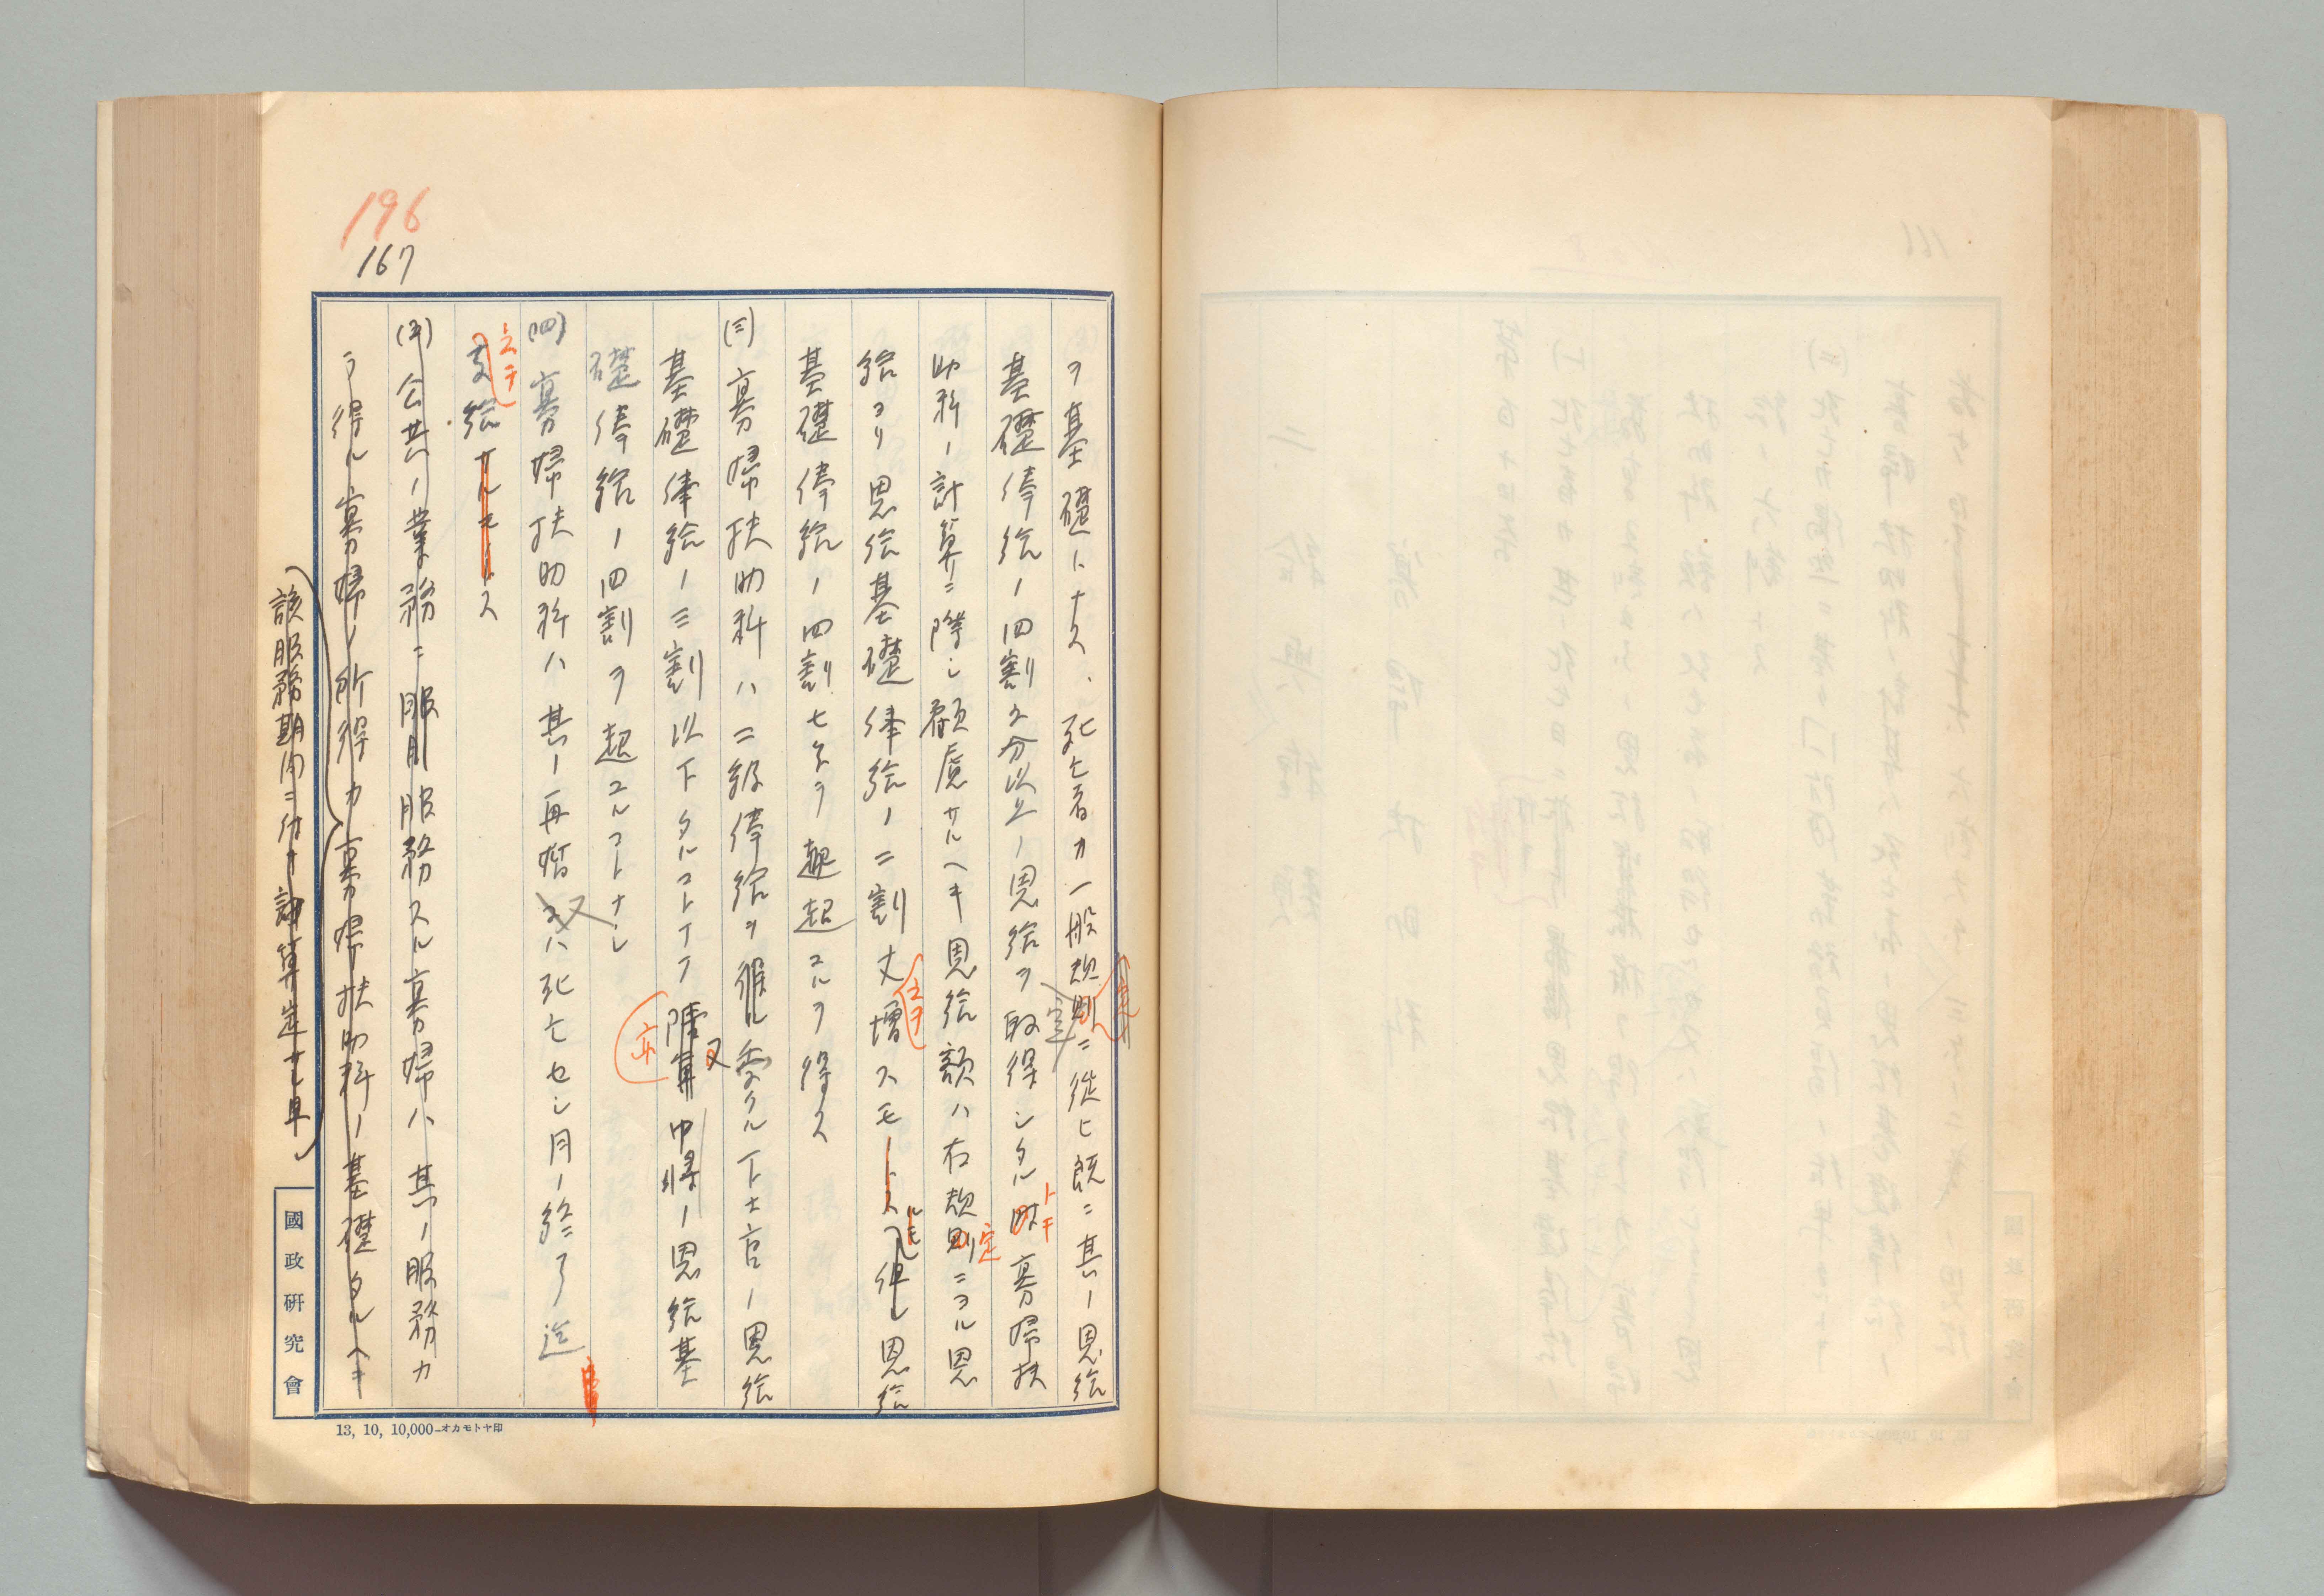 196
167
ヲ基礎トナス、死亡者カ一般規則ニ従ヒ既ニ其ノ恩給
基礎俸給ノ四割2分以上ノ恩給ヲ取得シタル時寡婦扶
助料ノ計算ニ際シ顧慮サルヘキ恩給額ハ右規則ニヨル恩
給ヨリ恩給基礎俸給ノ二割丈増スモノトス但シ恩給
基礎俸給ノ四割七分ヲ超ユルヲ得ス
(三)寡婦扶助料ハ二級俸給ヲ受クル下士官ノ恩給
基礎俸給ノ三割以下タルコトナク陸軍中将ノ恩給基
礎俸給ノ四割ヲ超ユルコトナシ
(四)寡婦扶助料ハ其ノ再婚又ハ死亡セシ月ノ終了迄
支給サルモノトス
(五)公共ノ業務ニ服務スル寡婦ハ其ノ服務カ
ラ得ル寡婦ノ所得カ寡婦扶助料ノ基礎タルヘキ
該服務期内ニ付キ計算
國政研究會
13, 10, 10,000—オカモトヤ印